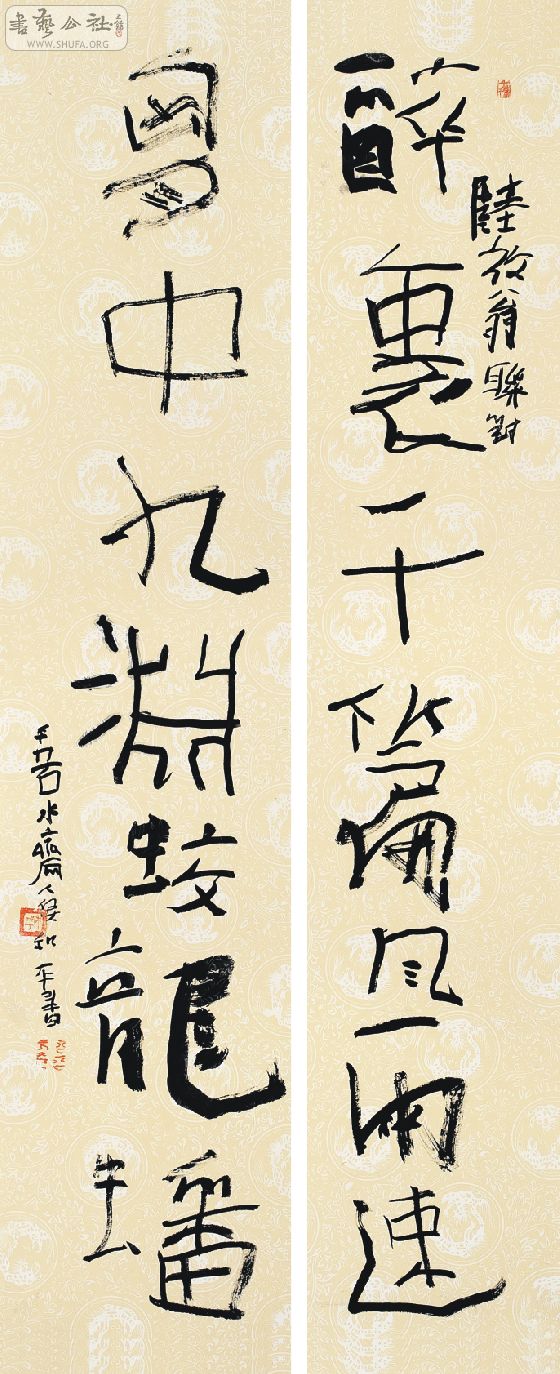 書藝公社
WWW.SHUFA.ORG
醉裏千篇風雨速
陸放翁聯對
胷中九淵蛟龍蟠